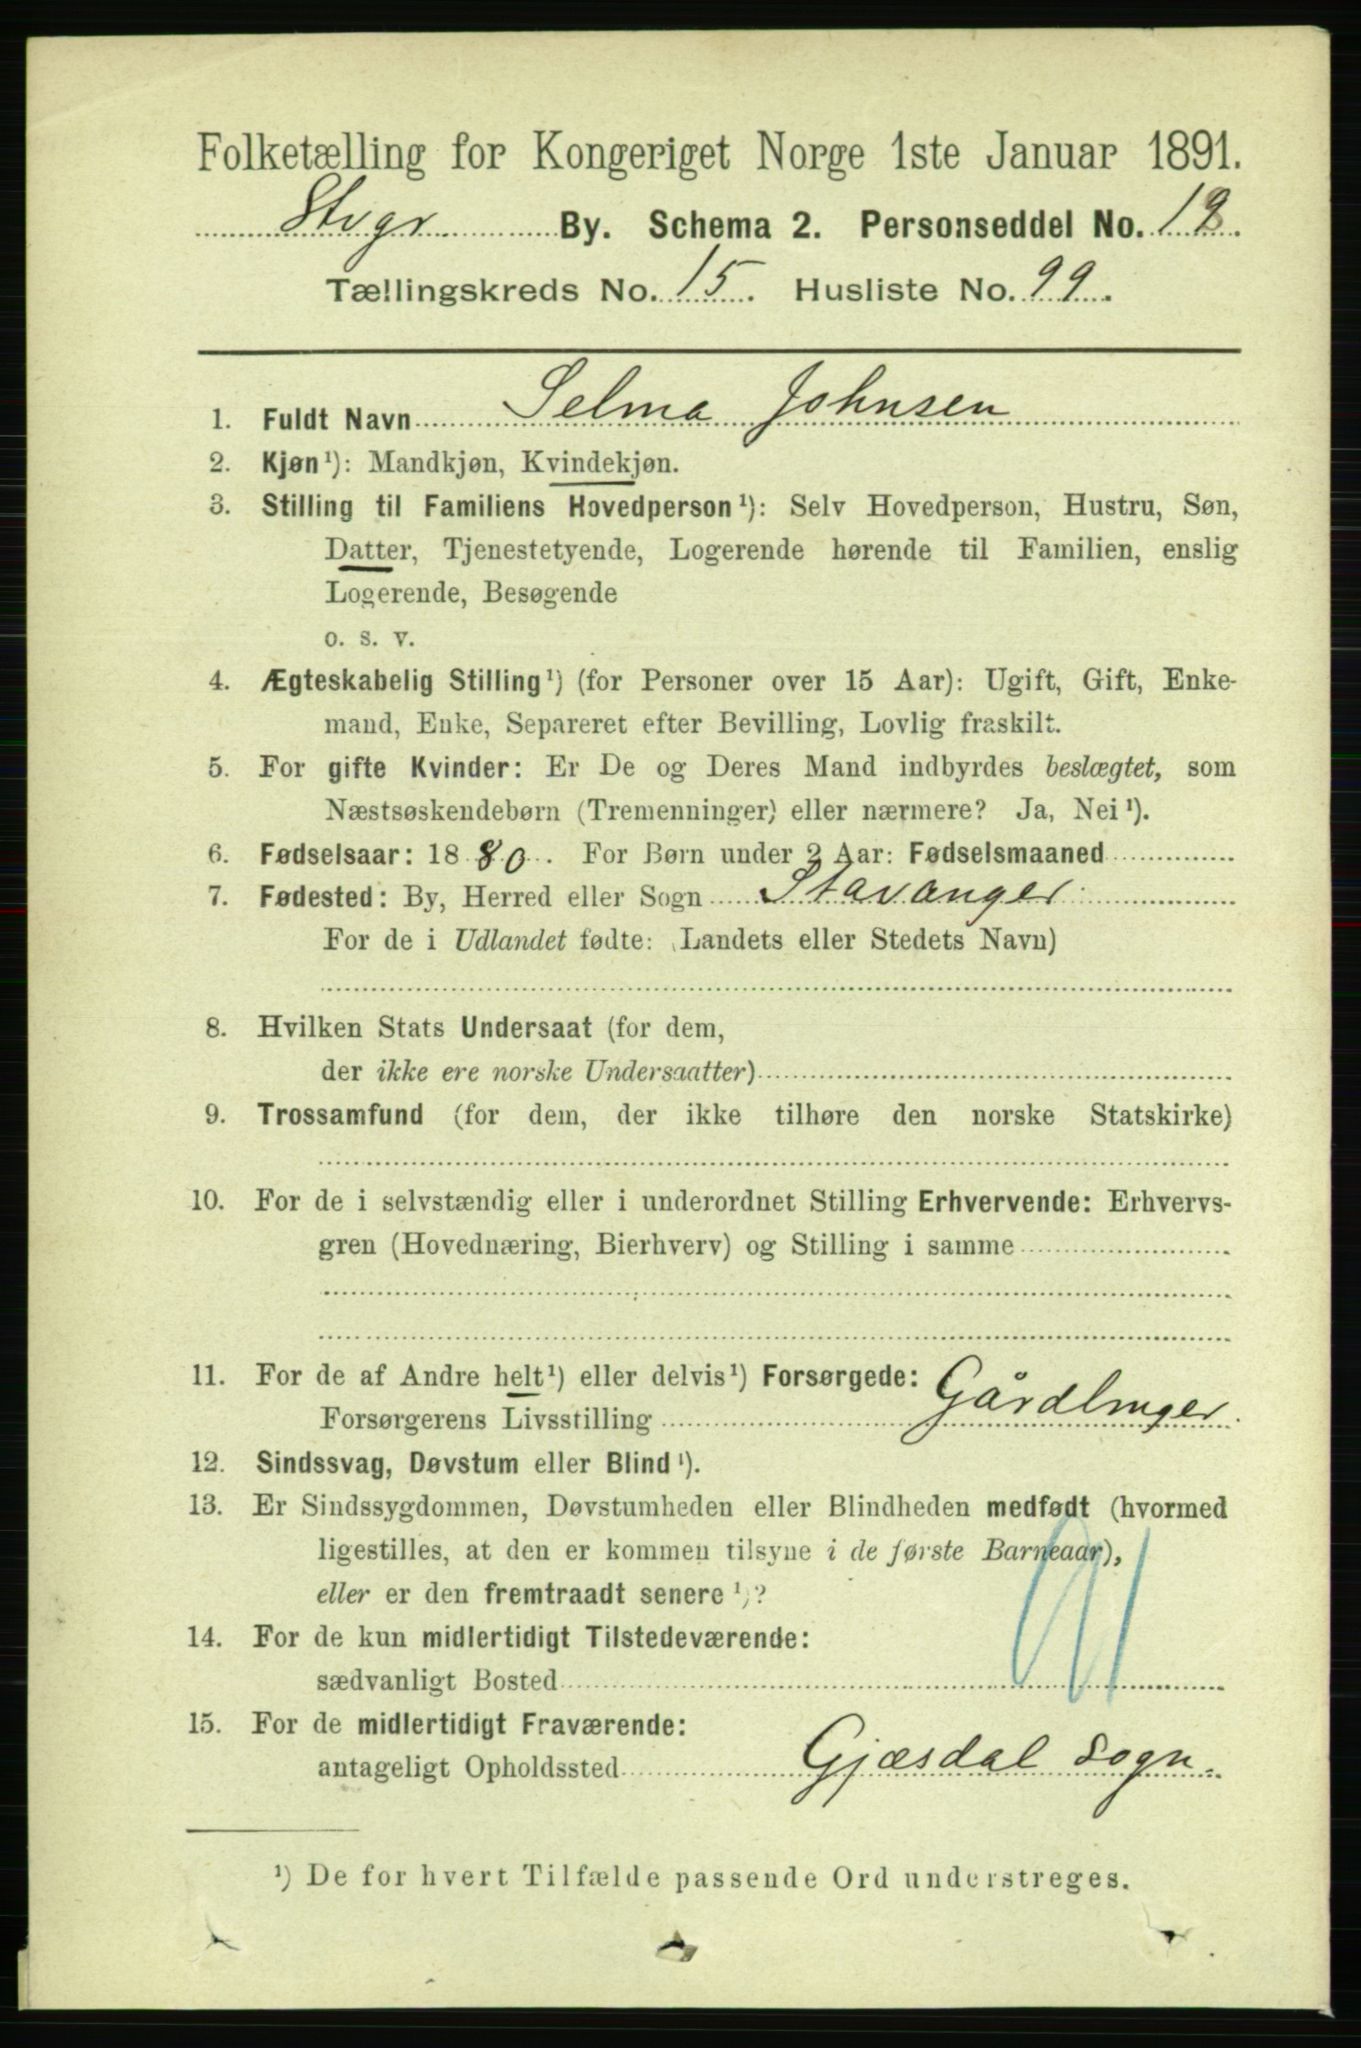 Folketælling for Kongeriget Norge 1ste Januar 1891.
Stvgr By. Schema 2. Personseddel No. 18.
Tællingskreds No. 15. Husliste No. 99.
1. Fuldt Navn Selma Johnsen
2. Kjøn¹): Mandkjøn, Kvindekjøn.
3. Stilling til Familiens Hovedperson¹): Selv Hovedperson, Hustru, Søn,
Datter, Tjenestetyende, Logerende hørende til Familien, enslig
Logerende, Besøgende
o. s. v.
4. Ægteskabelig Stilling¹) (for Personer over 15 Aar): Ugift, Gift, Enke-
mand, Enke, Separeret efter Bevilling, Lovlig fraskilt.
5. For gifte Kvinder: Er De og Deres Mand indbyrdes beslægtet, som
Næstsøskendebørn (Tremenninger) eller nærmere? Ja, Nei¹).
6. Fødselsaar: 1880. For Børn under 2 Aar: Fødselsmaaned
7. Fødested: By, Herred eller Sogn Stavanger
For de i Udlandet fødte: (Landets eller Stedets Navn)
8. Hvilken Stats Undersaat (for dem,
der ikke ere norske Undersaatter)
9. Trossamfund (for dem, der ikke tilhøre den norske Statskirke)
10. For de i selvstændig eller i underordnet Stilling Erhvervende: Erhvervs-
gren (Hovednæring, Bierhverv) og Stilling i samme
11. For de af Andre helt¹) eller delvis¹) Forsørgede:
Forsørgerens Livsstilling Gårdbruger.
12. Sindssvag, Døvstum eller Blind¹).
13. Er Sindssygdommen, Døvstumheden eller Blindheden medfødt (hvormed
ligestilles, at den er kommen tilsyne i de første Barneaar),
eller er den fremtraadt senere¹)?
14. For de kun midlertidigt Tilstedeværende:
sædvanligt Bosted
15. For de midlertidigt Fraværende:
antageligt Opholdssted Gjæsdal Sogn.
¹) De for hvert Tilfælde passende Ord understreges.